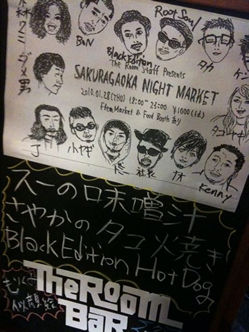 Root Soul
BaN
Black Edition
The Room Staff Presents
SAKURAGAOKA NIGHT MARKET
2010.01.28(thu) 18:00~23:00 ¥1000(1d)
Free Market & Food Booth by
J
小ヤギ
社長
Kenny
スーの味噌汁
さやかのタコ焼き
Black Edition Hot Dog
The Room
BAR
似顔絵